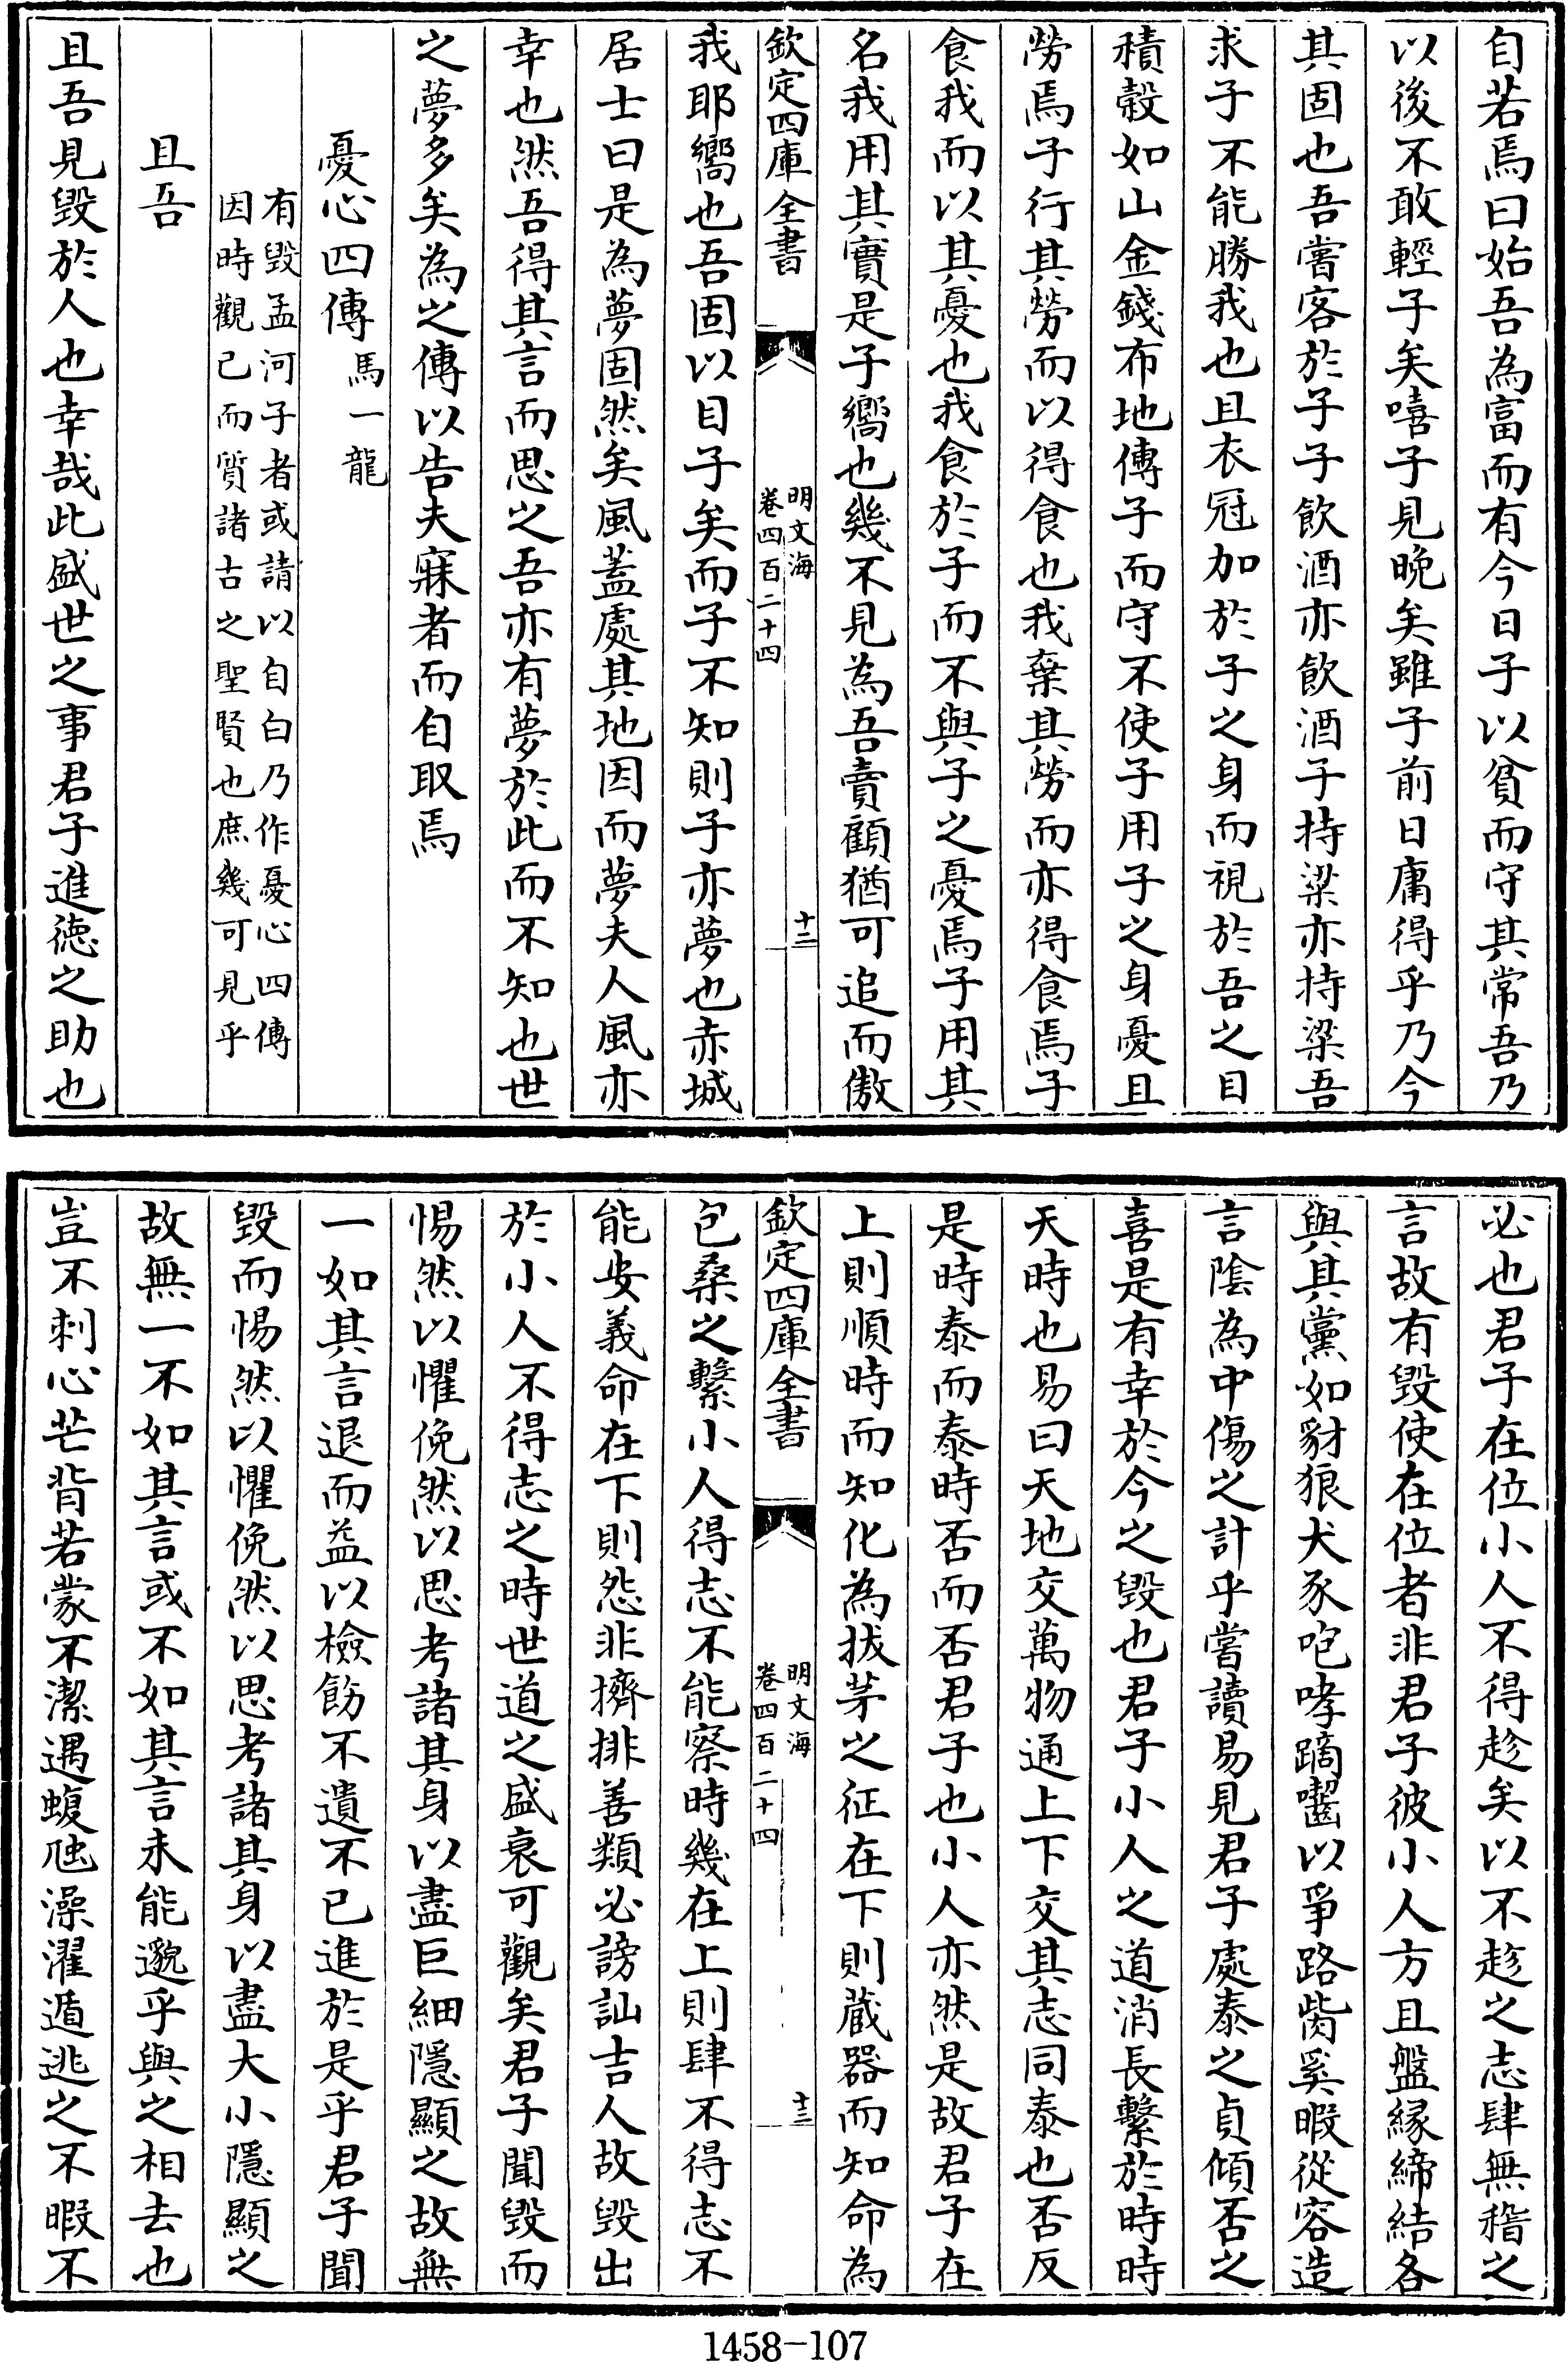 自若焉曰始吾為富而有今日子以貧而守其常吾乃
以後不敢輕子矣嘻子見晚矣雖子前日庸得乎乃今
其固也吾嘗客於子子飲酒亦飲酒子持粱亦持粱吾
求子不能勝我也且衣冠加於子之身而視於吾之目
積榖如山金錢布地傳子而守不使子用子之身憂且
勞焉子行其勞而以得食也我棄其勞而亦得食焉子
食我而以其憂也我食於子而不與子之憂焉子用其
名我用其實是子嚮也幾不見為吾賣顧猶可追而傲
欽定四庫全書
明文海
卷四百二十四
十二
我耶嚮也吾固以目子矣而子不知則子亦夢也赤城
居士曰是為夢固然矣風蓋處其地因而夢夫人風亦
幸也然吾得其言而思之吾亦有夢於此而不知也世
之夢多矣為之傳以告夫寐者而自取焉
憂心四傳 馬一龍
有毀孟河子者或請以自白乃作憂心四傳
因時觀已而質諸古之聖賢也庶幾可見乎
且吾
且吾見毀於人也幸哉此盛世之事君子進德之助也
必也君子在位小人不得趁矣以不趁之志肆無稽之
言故有毀使在位者非君子彼小人方且盤緣締結各
與其黨如豺狼犬豕咆哮蹢齧以爭路啙奚暇從容造
言陰為中傷之計乎嘗讀易見君子處泰之貞傾否之
喜是有幸於今之毀也君子小人之道消長繫於時時
天時也易曰天地交萬物通上下交其志同泰也否反
是時泰而泰時否而否君子也小人亦然是故君子在
上則順時而知化為拔茅之征在下則藏器而知命為
欽定四庫全書
明文海
卷四百二十四
十三
包桑之繫小人得志不能察時幾在上則肆不得志不
能安義命在下則怨非擠排善類必謗訕吉人故毀出
於小人不得志之時世道之盛衰可觀矣君子聞毀而
惕然以懼俛然以思考諸其身以盡巨細隱顯之故無
一如其言退而益以檢飭不遺不已進於是乎君子聞
毀而惕然以懼俛然以思考諸其身以盡大小隱顯之
故無一不如其言或不如其言未能邈乎與之相去也
豈不刺心芒背若蒙不潔遇蝮虺澡濯遁逃之不暇不
1458-107